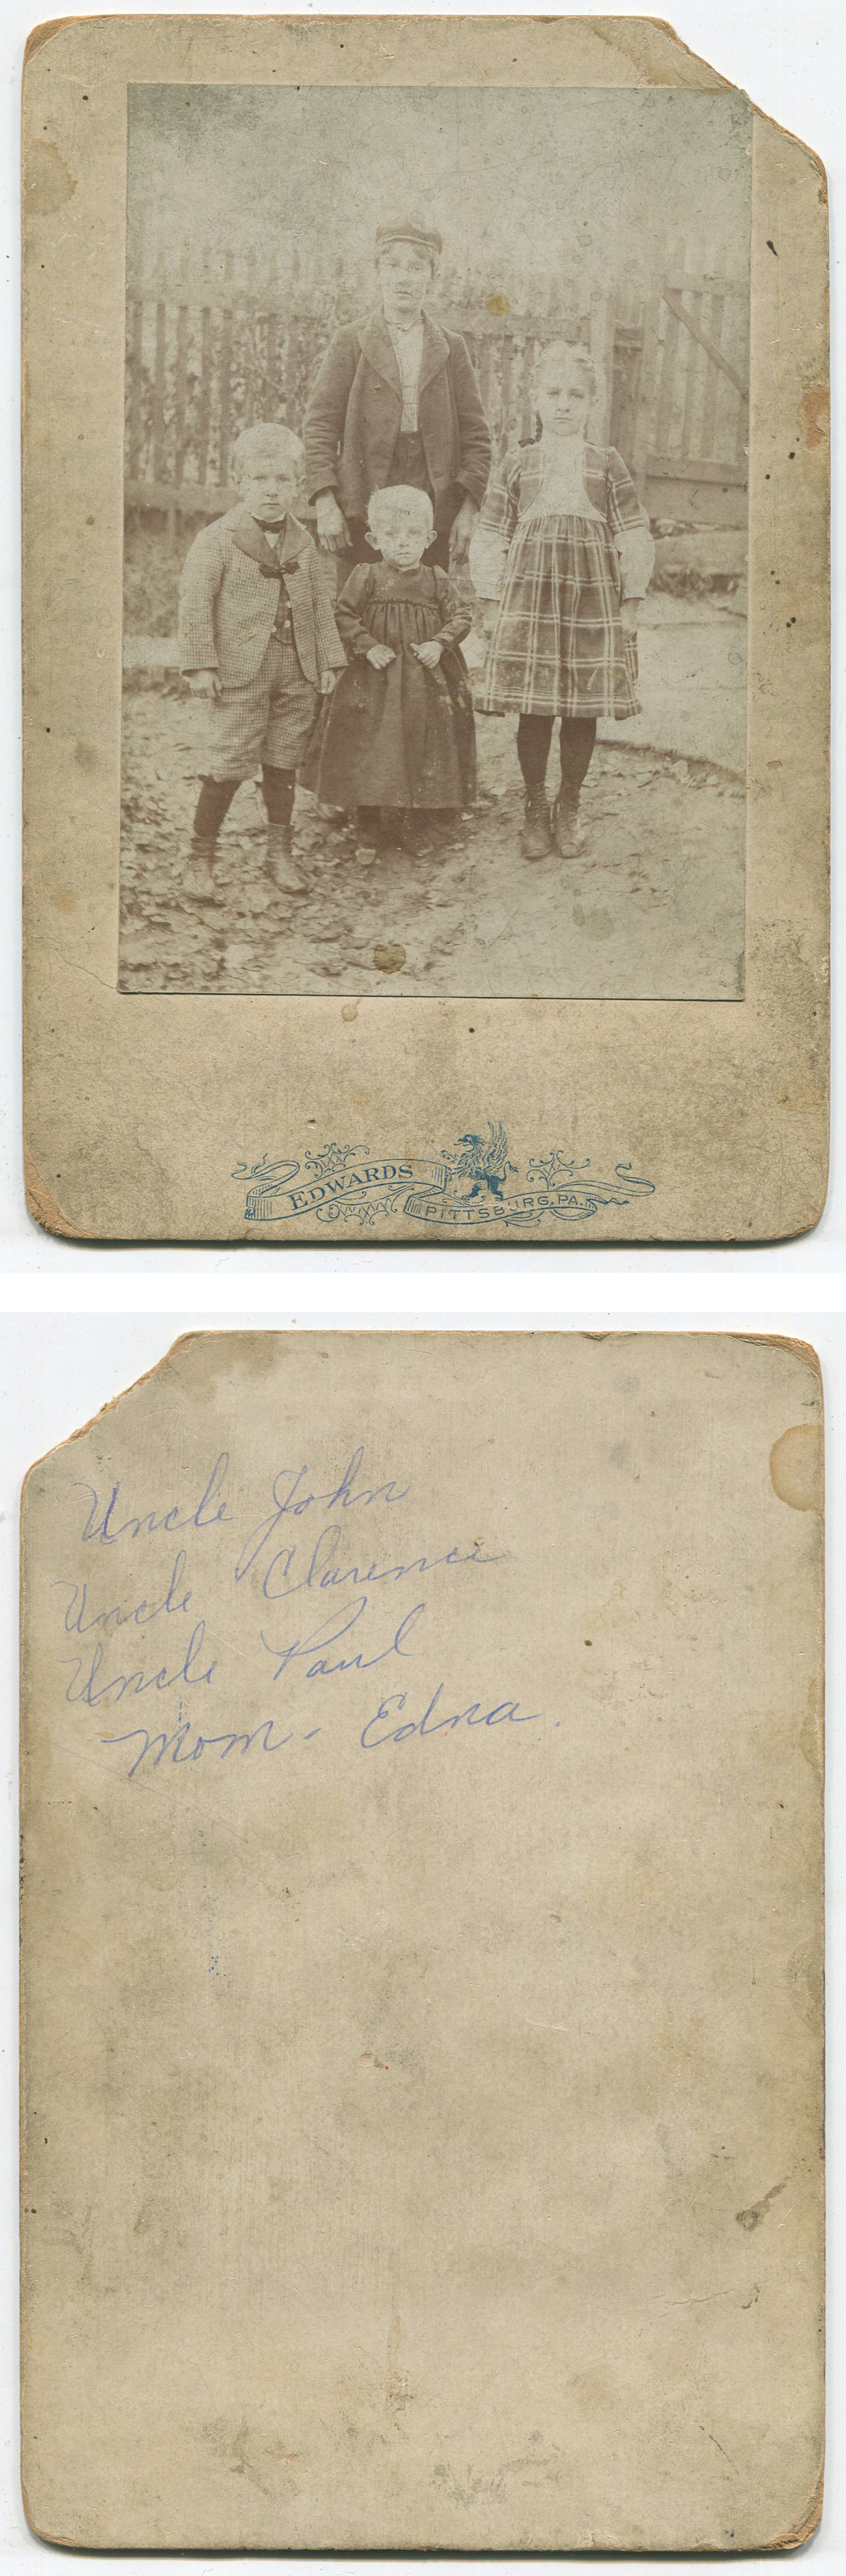 EDWARDS
PITTSBURG, PA.
Uncle John
Uncle Clarence
Uncle Paul
Mom - Edna.